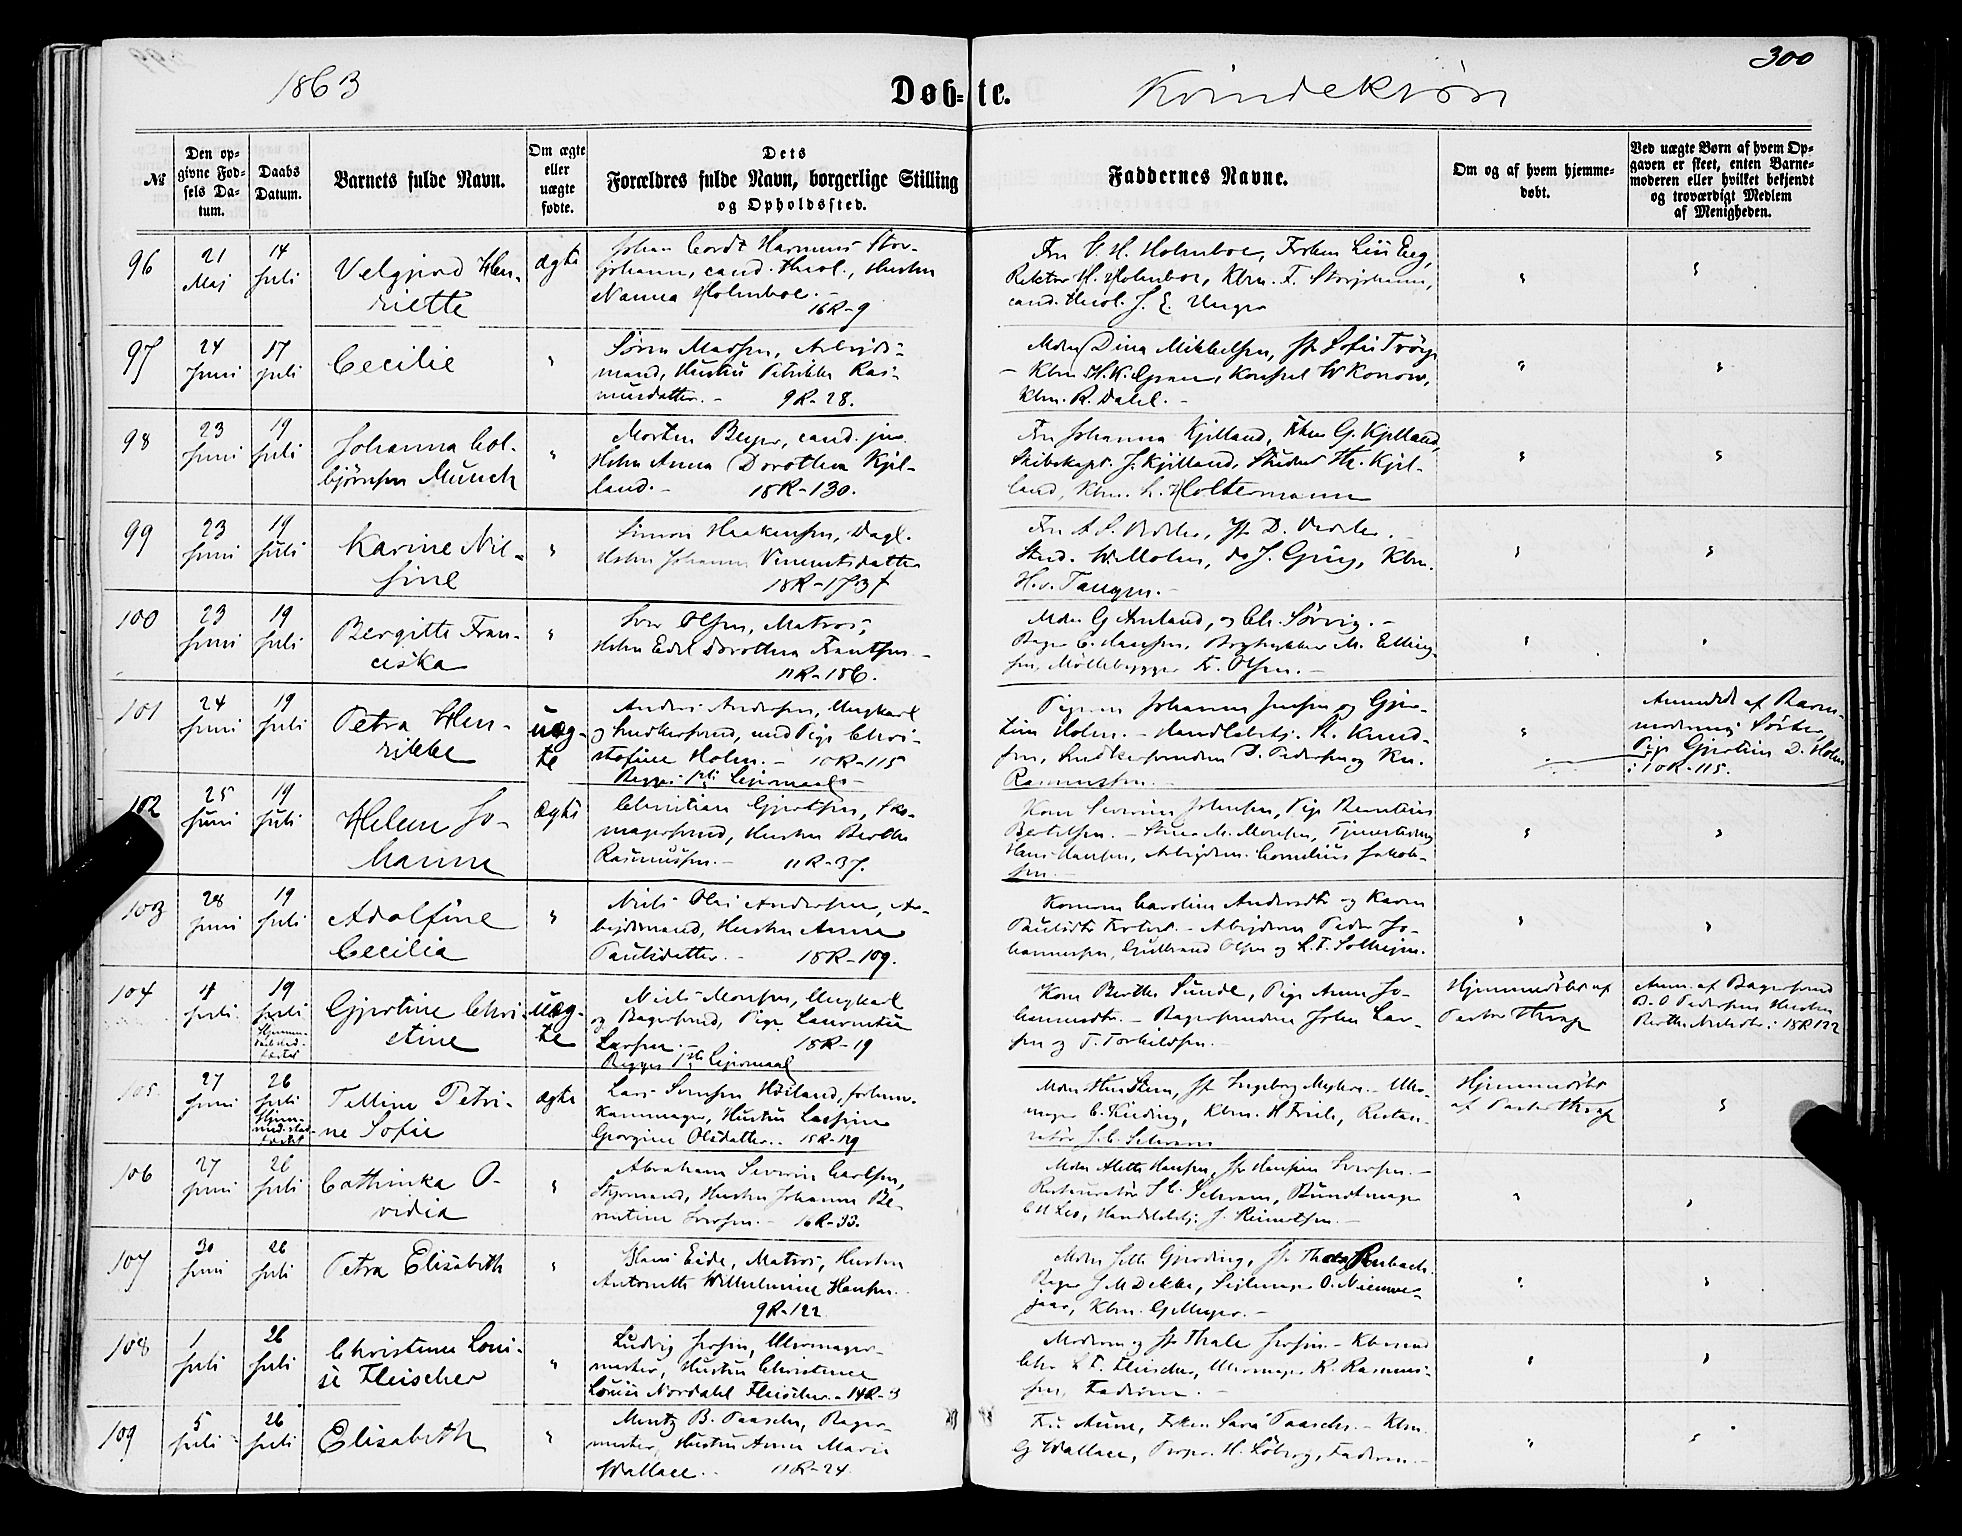 300
1863
Døb-te.
Kvindekjøn
№
Den opgivne Fødsels Datum.
Daabs Datum.
Barnets fulde Navn.
Om ægte eller uægte fødte.
Dets Forældres fulde Navn, borgerlige Stilling og Opholdssted.
Faddernes Navne.
Om og af hvem hjemmedøbt.
Ved uægte Børn af hvem Opgaven er skeet, enten Barnemoderen eller hvilket bekjendt og troværdigt Medlem af Menigheden.
96
21 Maj
14 Juli
Velgjerd Hen-
riette
ægte
Johan Cordt Harmens Stor-
johann, cand. theol., Hustru
Nanna Holmboe.-
16R-9
Fru C. H. Holmboe, Frøken Lii Eeg,
Rektor H. Holmboe, Kbm. F. Storjohann,
cand. theol. J. E. Unger
97
24 Juni
17 Juli
Cecilie
Søren Madsen, Arbejds-
mand, Hustru Petrikke Ras-
musdatter.- 9R-28.
Moder Dina Mikkelsen,
Konsul W Konow,
Kbm. R. Dahl.-
98
23 Juni
19 Juli
Johanna Col-
bjørnsen Munch
Morten Beyer, cand. jur.
Hstru Anna Dorothea Kjel-
land.- 18R-130.
Fru Johanna Kjelland, Frkn G. Kjelland,
Skibskapt. J. Kjelland, Student Th. Kjel-
land, Kbm. L. Holtermann
99
23 Juni
19 Juli
Karine Nil-
sine
Simon Haakensen, Dagl.
Hstru Johanna Vincentsdatter
18R-173
Stud. W. Mohn, do J. Grieg, Kbm.
H. v. Tangen.-
100
23 Juni
19 Juli
Bergitte Fran-
ciska
Iver Olsen, Matros,
Hstru Edel Dorothea Frantsen.-
11R-186.
Bager C. Hansen, Bogtrykker M. Elling-
sen, Møllebygger K. Olsen.-
101
24 Juni
19 Juli
Petra Hen-
rikke
uæg-
te
Anders Andersen, Ungkarl
og Snedkersvend, med Pige Chri-
stofine Holm.- 10R-115
Begges 1ste Lejermaal-
Pigerne Johanna Jensen og Gjer-
tine Holm.- Handelsbetj. K. Knud-
sen, Snedkersvendene D. Pedersen og Kn.
Rasmussen.-
Anmeldt af Barne-
moderens Søster,
Pige Gjertine D. Holm
i 10R-115.
102
25 Juni
19 Juli
Helene Jo-
hanne
ægte
Christian Gjertsen, Sko-
magersvend, Hustru Berthe
Rasmussen.- 11R-37.
Kone Severine Johnsen, Pige Berntine
Bertelsen.- M. Monsen, Tjenestedreng
Hans Hansen, Arbejdsm. Cornelius Jakob-
sen.-
103
28 Juni
19 Juli
Adolfine
Cecilia
Niels Olai Andersen, Ar-
bejdsmand, Hustru Anne
Paulsdatter.- 18R-109.
Konerne Caroline Andersdtr og Karen
Paulsdtr. - Arbejderne Peder Jo-
hannessen, Gulbrand Olsen og L. T. Solhejm.
104
4 Juli
19 Juli
Gjertine Chri-
stine
uæg-
te
Niels Monsen, Ungkarl
og Bagersvend, Pige Laurentze
Larsen.- 18R-19
Begges 1ste Lejermaal
Kone Berthe Sunde, Pige Anne Jo-
hannesdtr.- Bagersvendene John Lar-
sen og T. Torkildsen.-
Hjemmedøbt af
Pastor Thrap
Anm. af Bagersvend
B. O. Pedersens Hustru
Berthe Nielsdtr i 18R122
105.
27 Juni
26 Juli
Telline Petri-
ne Sofie
ægte
Lars Svendsen Høiland, forhenv.
Kammager, Hustru Lassine
Georgine Olsdatter.. 18R-129
Hjemmedøbt
af Pastor Thrap
106
27 Juni
26 Juli
Cathinka O-
vidia
Abraham Severin Carlsen,
Styrmand, Hustru Johanne Be-
rentine Iversen.- 16R-33.
Moder Alette Hansen,
Restauratør J. C. Schram, Bundtmager
C H Lea, Handelsbetj. J. Reinertsen.-
107
30 Juni
26 Juli
Petra Elisabeth
Hans Eide, Matros, Hustru
Antonette Wilhelmine Hansen.
9R-122
Bager J. M Dekke, Sejlmager O. Nieuwe-
jaar, Kbm. G Meyer.-
108
1 Juli
26 Juli
Christine Loui-
se Fleischer
Ludvig Jersin, Uhrmager-
mester, Hustru Christence
Louise Nordahl Fleischer.- 14R-3
Moderen og Thale Jersin.- Kbsvend
Chr. L. F. Fleischer, Uhrmager R. Rasmus-
sen, Faderen.-
109
5 Juli
26 Juli
Elisabeth
Mentz B. Paasche, Bager-
mester, Hustru Anne Marie
Wallace.. 11R-24.
Frøken Sara Paasche.- Kbm.
G Wallace, H. Løberg, Faderen.-